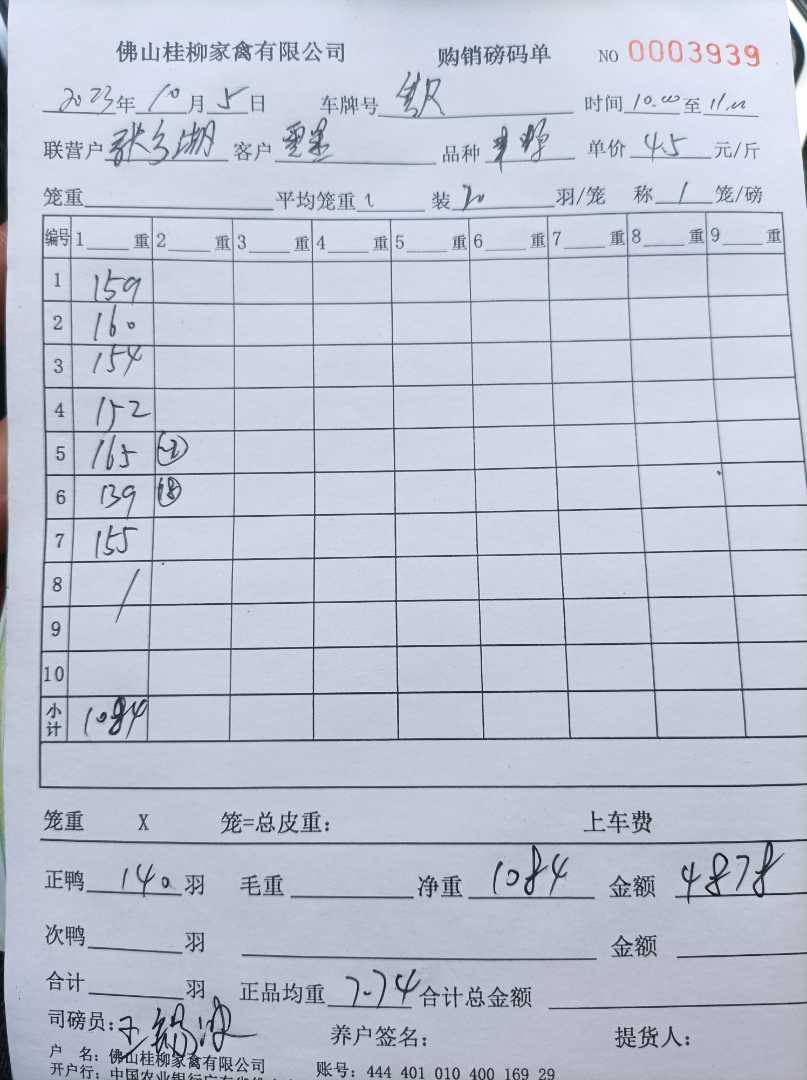 佛山桂柳家禽有限公司 购销磅码单 NO 0003939
2023年10月5日 车牌号 时间10.00至11.00
联营户 客户 品种 单价4.5元/斤
笼重 平均笼重 装20羽/笼 称1笼/磅
编号 1 重 2 重 3 重 4 重 5 重 6 重 7 重 8 重 9 重
1 159
2 160
3 154
4 152
5 165
6 139 18
7 155
8 /
9
10
小计 1084
笼重 X 笼=总皮重: 上车费
正鸭 140 羽 毛重 净重 1084 金额 4878
次鸭 羽 金额
合计 羽 正品均重 7.74 合计总金额
司磅员: 养户签名: 提货人:
户 名: 佛山桂柳家禽有限公司
开户行: 中国农业银行 账号: 444 401 010 400 169 29